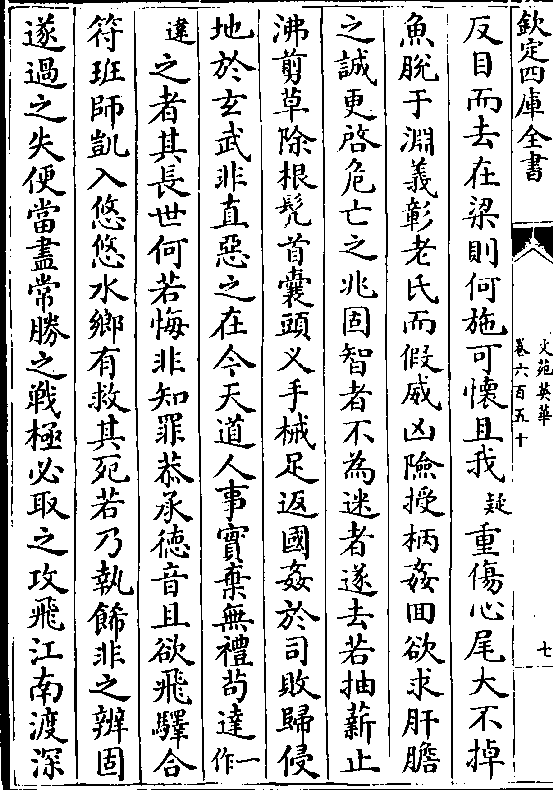 欽定四庫全書
文苑英華
卷六百五十
七
反目而去在梁則何施可懷且我疑重傷心尾大不掉
魚脫于淵義彰老氏而假威凶險授柄姦回欲求肝膽
之誠更啓危亡之兆固智者不為迷者遂去若抽薪止
沸剪草除根髠首囊頭乂手械足返國姦於司敗歸侵
地於玄武非直惡之在今天道人事實棄無禮苟達一作
違之者其長世何若悔非知罪恭承徳音且欲飛驛合
符班師凱入悠悠水鄉有救其死若乃執餙非之辨固
遂過之失便當盡常勝之戰極必取之攻飛江南渡深